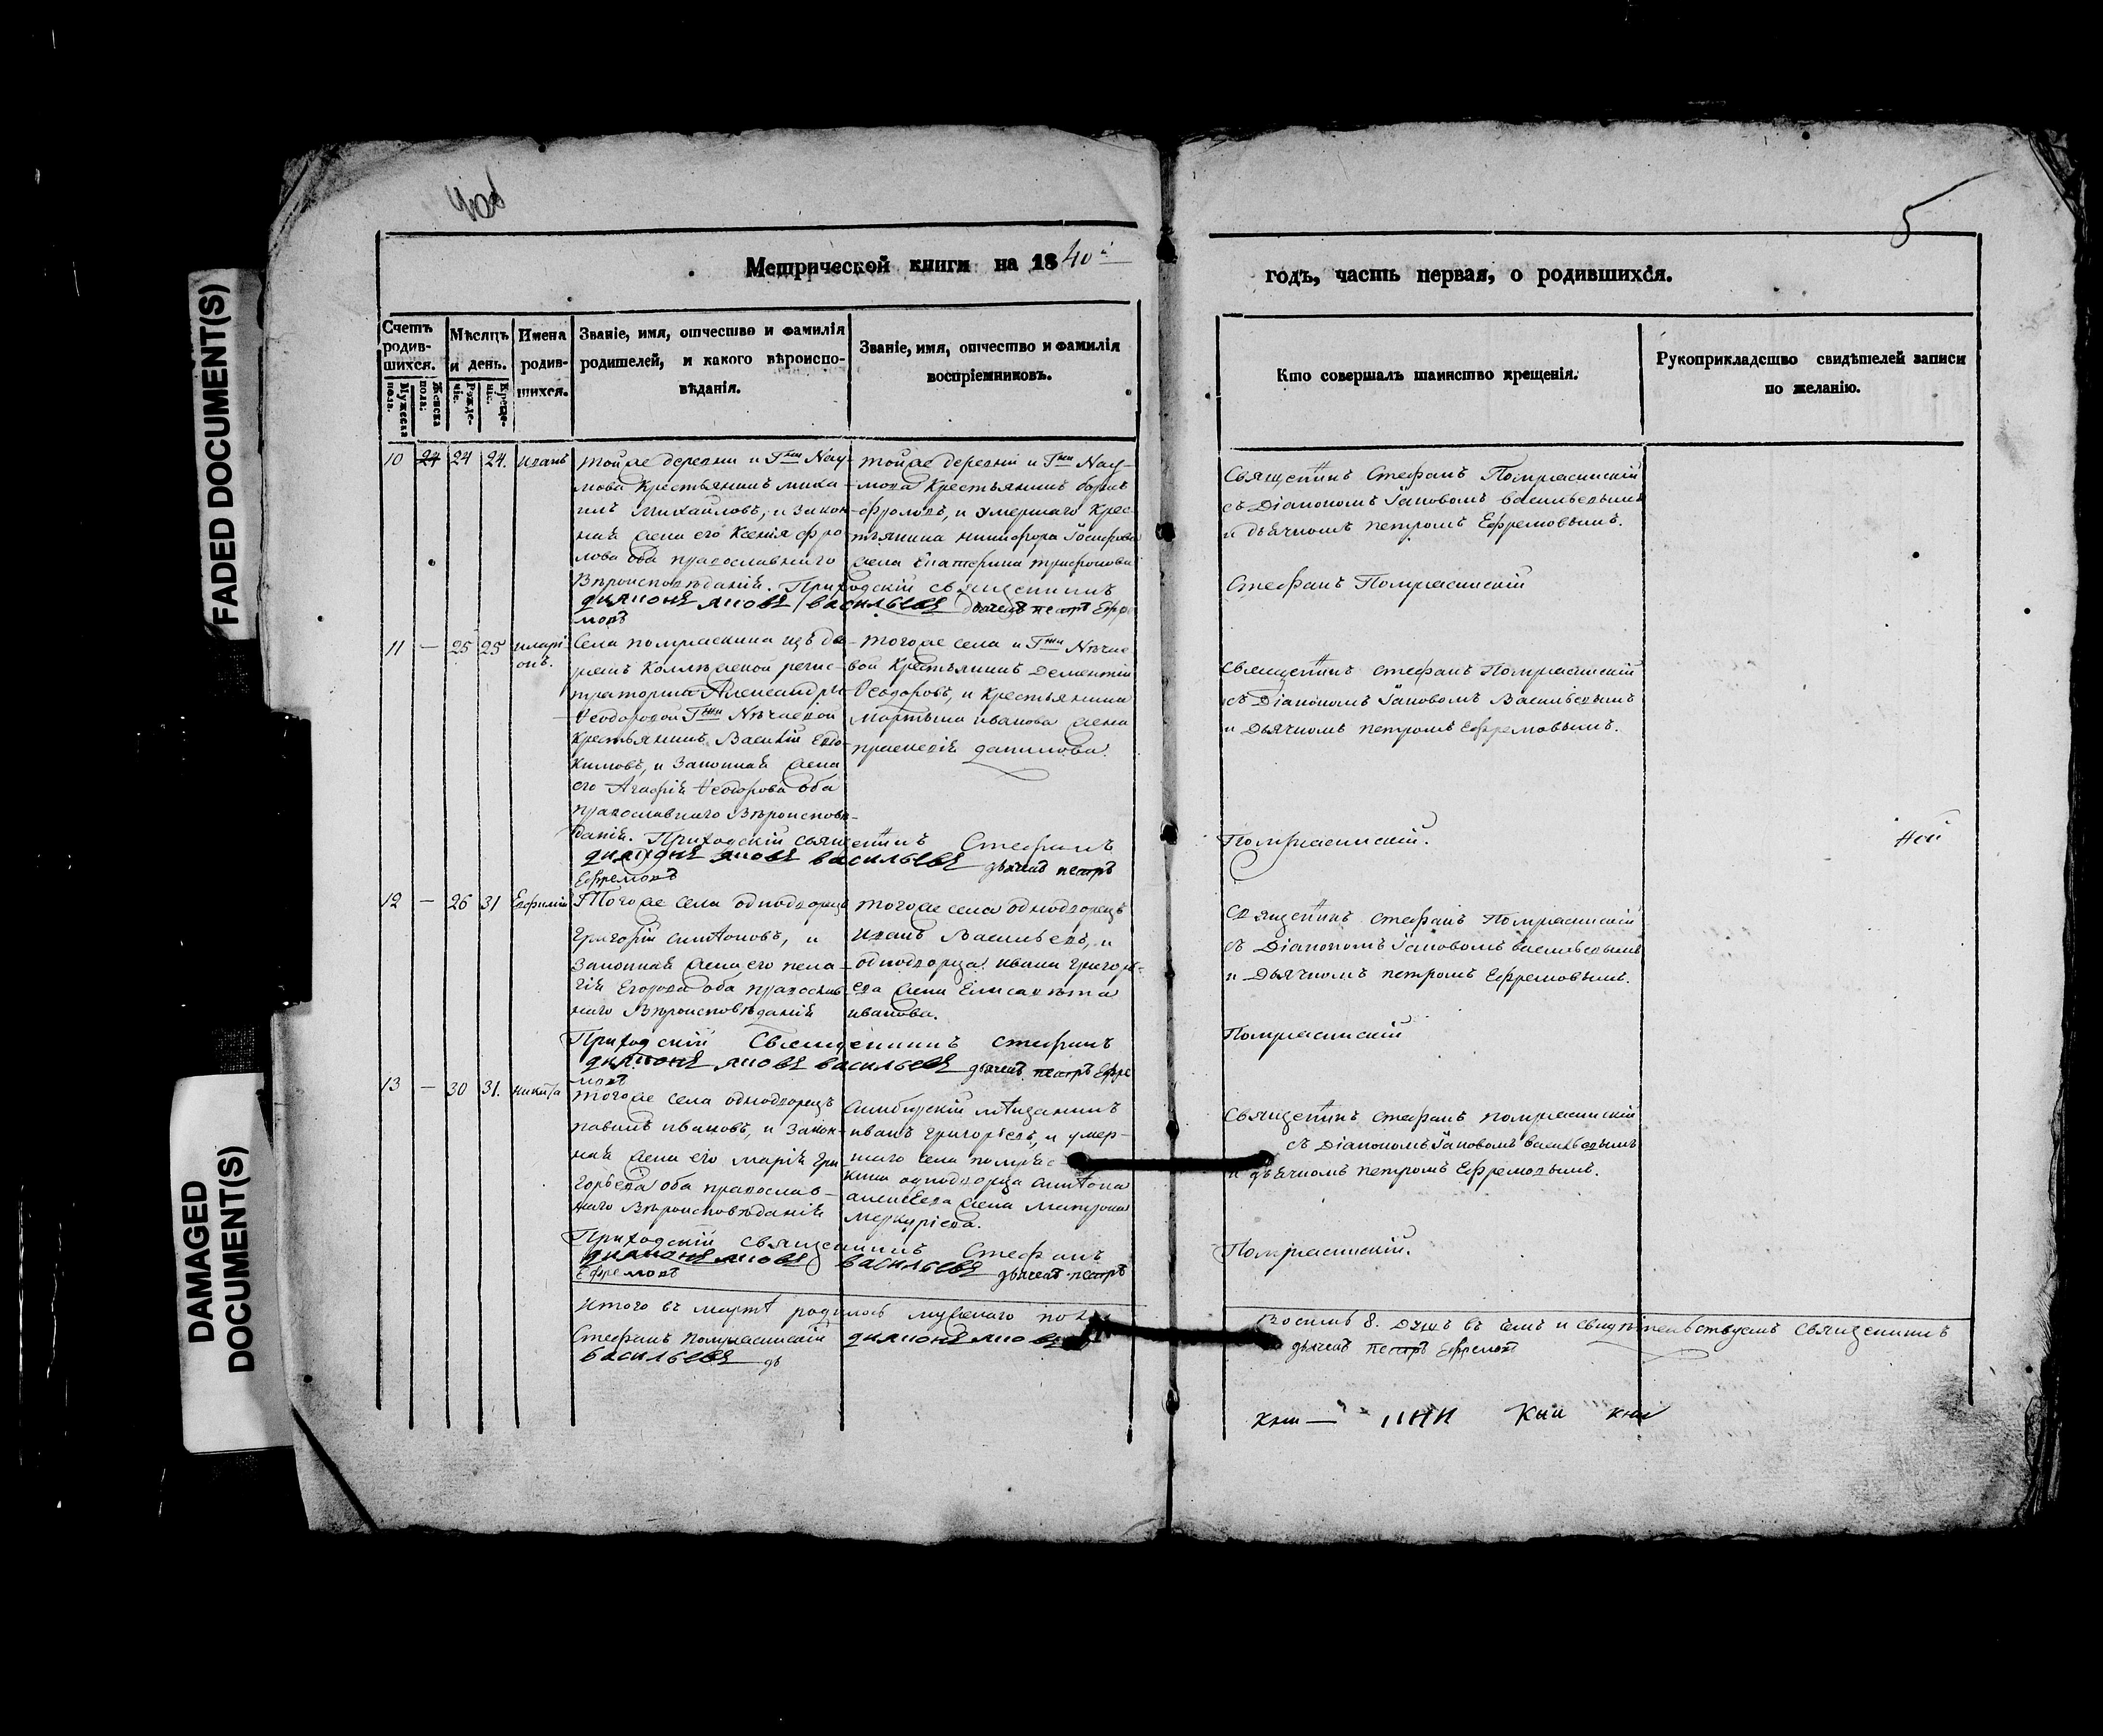 FADED DOCUMENT(S)
DAMAGED DOCUMENT(S)
5
Метрической книги на 1840й
годъ, часть первая, о родившихся.
Счетъ родив-шихся.
Мужеска пола.
Женска пола.
Мѣсяцъ и день.
Рожде-нія.
Креще-нія.
Имена родив-шихся.
Званіе, имя, отчество и фамилія
родителей, и какого вѣроиспо-
вѣданія.
Званіе, имя, отчество и фамилія
воспріемниковъ.
Кто совершалъ таинство крещенія.
Рукоприкладство свидѣтелей записи
по желанію.
10 24 24 24. Иванъ
тойже деревни и Гжи Нау-
мова Крестьянинъ миха-
илъ Михайловъ, и закон-
ная жена его Ксенія Фро
лова оба православнаго
Вѣроисповѣданія. Приходскій священникъ
диаконъ яковъ васильевъ дьячекъ петръ Ефре
мовъ
тойже деревни и Гжи Нау-
мова Крестьянинъ
Фроловъ, и умершаго Крес-
тьянина никифора Іосифова
жена Екатерина трифонова
Священникъ Стефанъ Полмраскинскій
съ Діакономъ Іаковомъ васильевымъ
и дьячкомъ петромъ Ефремовымъ.
Стефанъ Полмраскинскій
11 — 25 25 иларі
онъ.
Села полмраскина изъ дво
рянъ Коллежской регис-
траторши Александры
Ѳеодоровой Гжи Нѣчаевой
Крестьянинъ Василій Евдо-
кимовъ, и Законная жена
его Агафія Ѳеодорова оба
православнаго Вѣроисповѣ-
данія. Приходскій священникъ Стефанъ
диаконъ яковъ васильевъ дьячекъ петръ
Ефремовъ
тогоже села и Гжи Нѣчае
вой Крестьянинъ Дементій
Ѳеодоровъ, и Крестьянина
Мартына иванова жена
данилова
Священникъ Стефанъ Полмраскинскій
съ Діакономъ Іаковомъ Васильевымъ
и Дьячкомъ петромъ Ефремовымъ.
Полмраскинскій.
12 — 26 31 Евфимій
Тогоже села однодворецъ
Григорій антоновъ, и
Законная жена его пела-
гія Егорова оба православ
наго Вѣроисповѣданія
Приходскій Священникъ Стефанъ
диаконъ яковъ васильевъ дьячекъ петръ Ефре
мовъ
тогоже села однодворецъ
Иванъ Васильевъ, и
однодворца ивана Григорь-
ева жена Елисавета
иванова.
Священникъ Стефанъ Полмраскинскій
съ Діакономъ Іаковомъ васильевымъ
и Дьячкомъ петромъ Ефремовымъ.
Полмраскинскій
13 — 30 31. Никита
тогоже села однодворецъ
ивановъ, и Закон-
ная жена его марія Гри
горьева оба православ-
наго Вѣроисповѣданія
Приходскій священникъ Стефанъ
диаконъ яковъ васильевъ дьячекъ петръ
Ефремовъ
Симбирскій мѣщанинъ
иванъ Григорьевъ, и умер-
шаго села полмрас
кина однодворца антона
алексѣева жена Матрона
Меркуріева.
Священникъ Стефанъ полмраскинскій
съ Діакономъ Іаковомъ васильевымъ
и дьячкомъ петромъ Ефремовымъ.
Полмраскинскій.
Итого въ мартѣ родилось мужескаго пола
восемь 8. душъ въ чемъ и свидѣтельствуемъ Священникъ
Стефанъ полмраскинскій диаконъ яковъ
васильевъ дь
дьячекъ петръ Ефремовъ